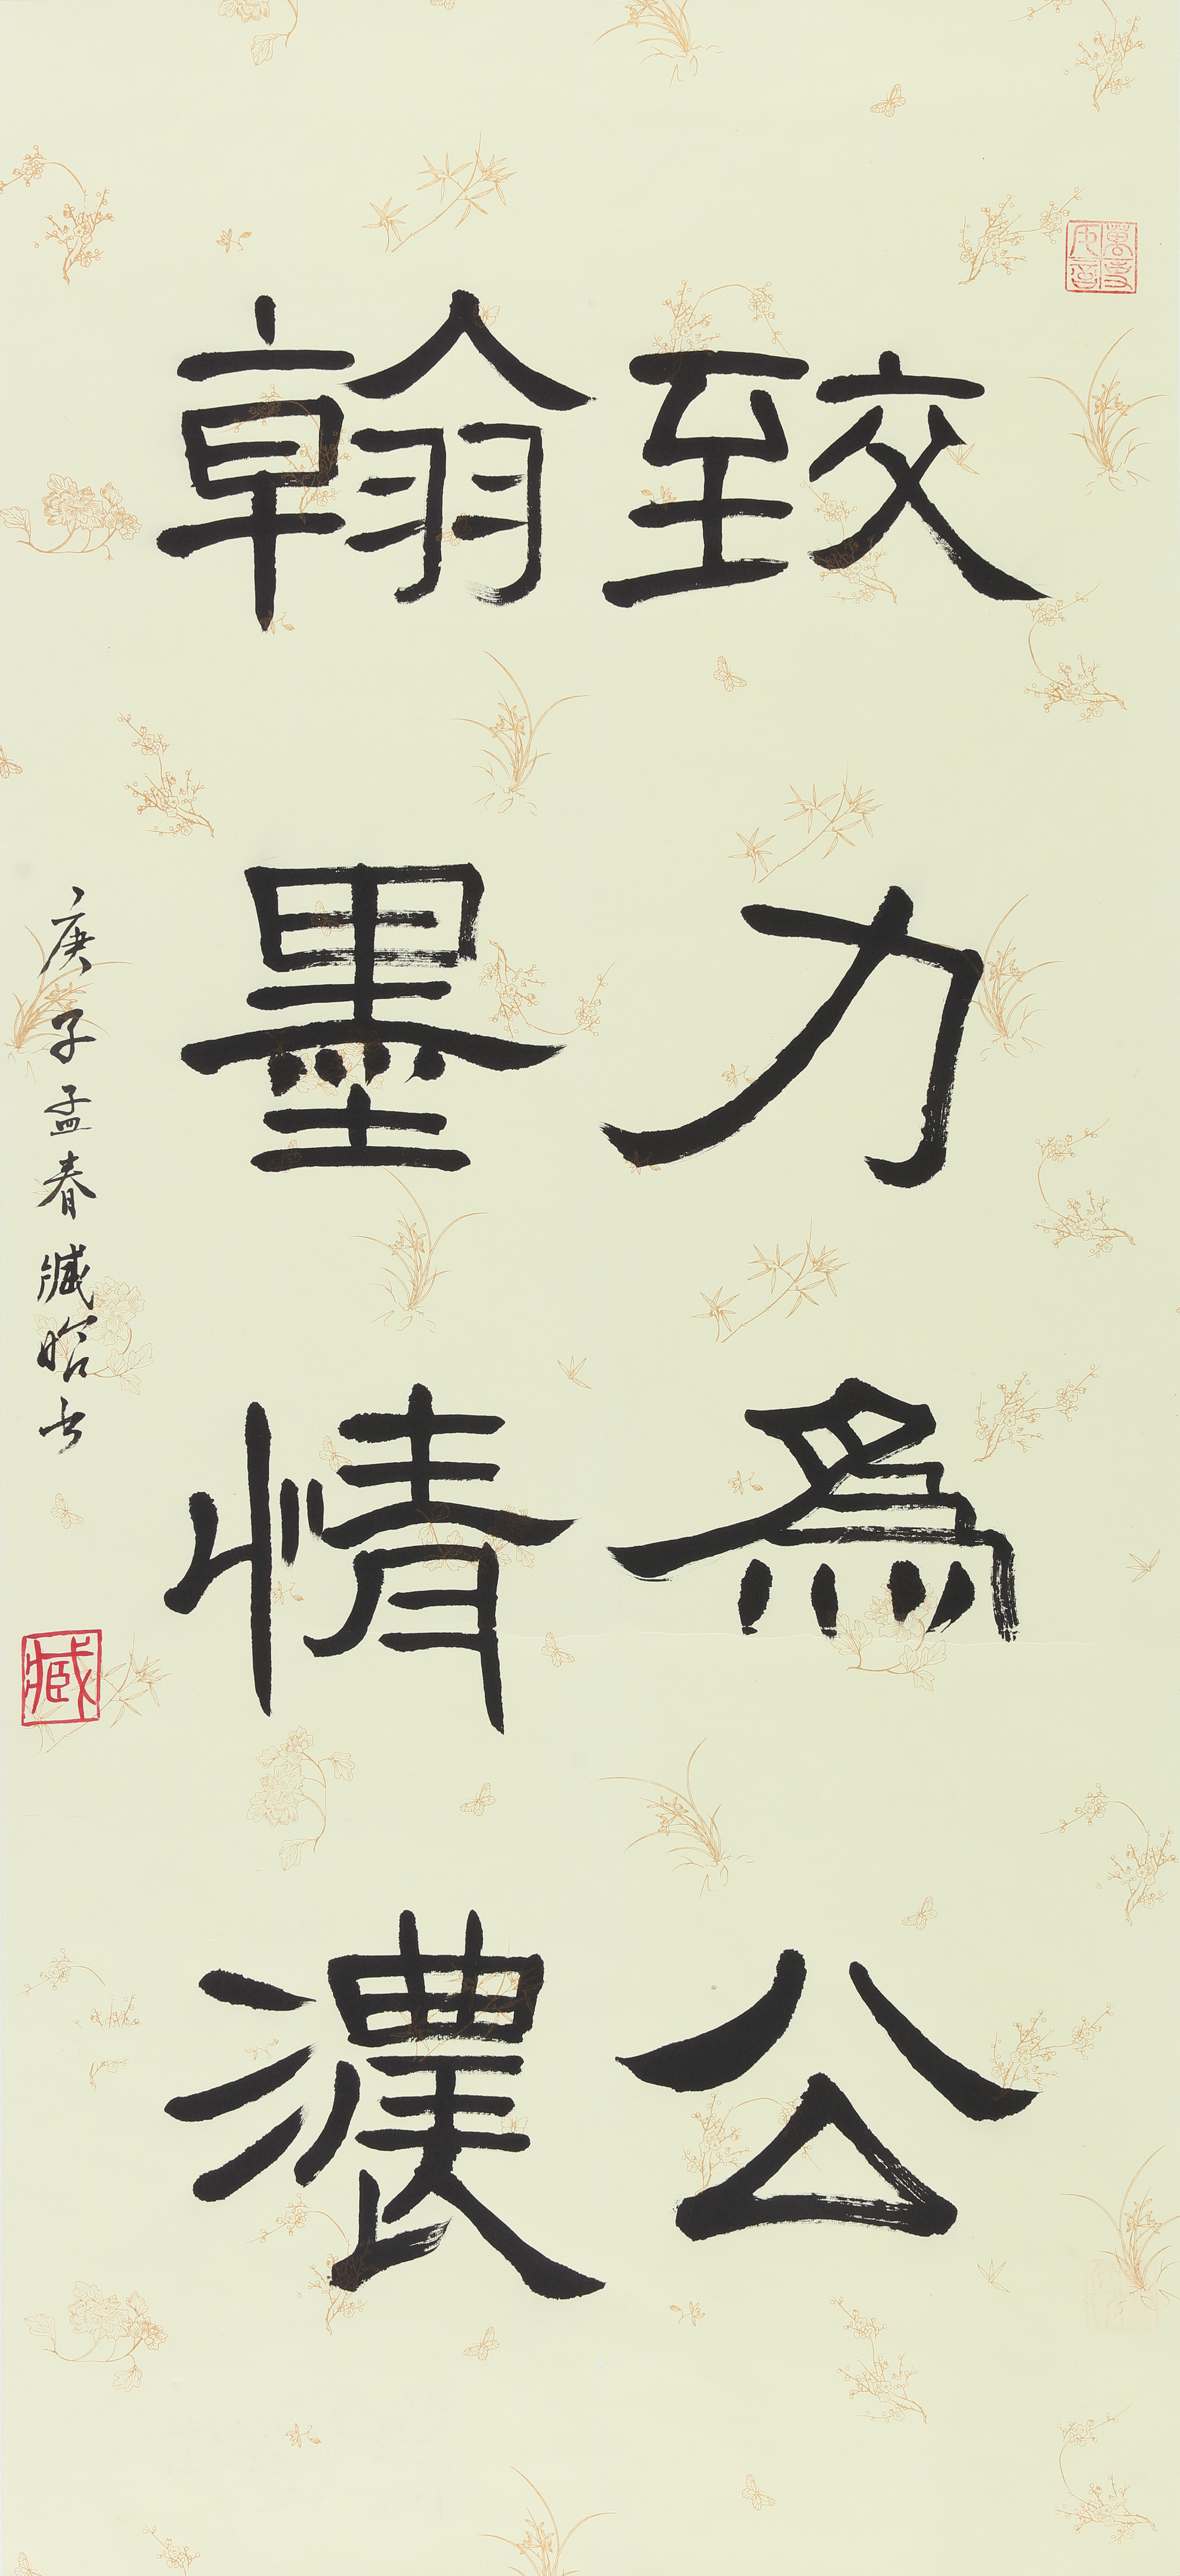 致力為公
翰墨情濃
庚子孟春臧晗书
臧